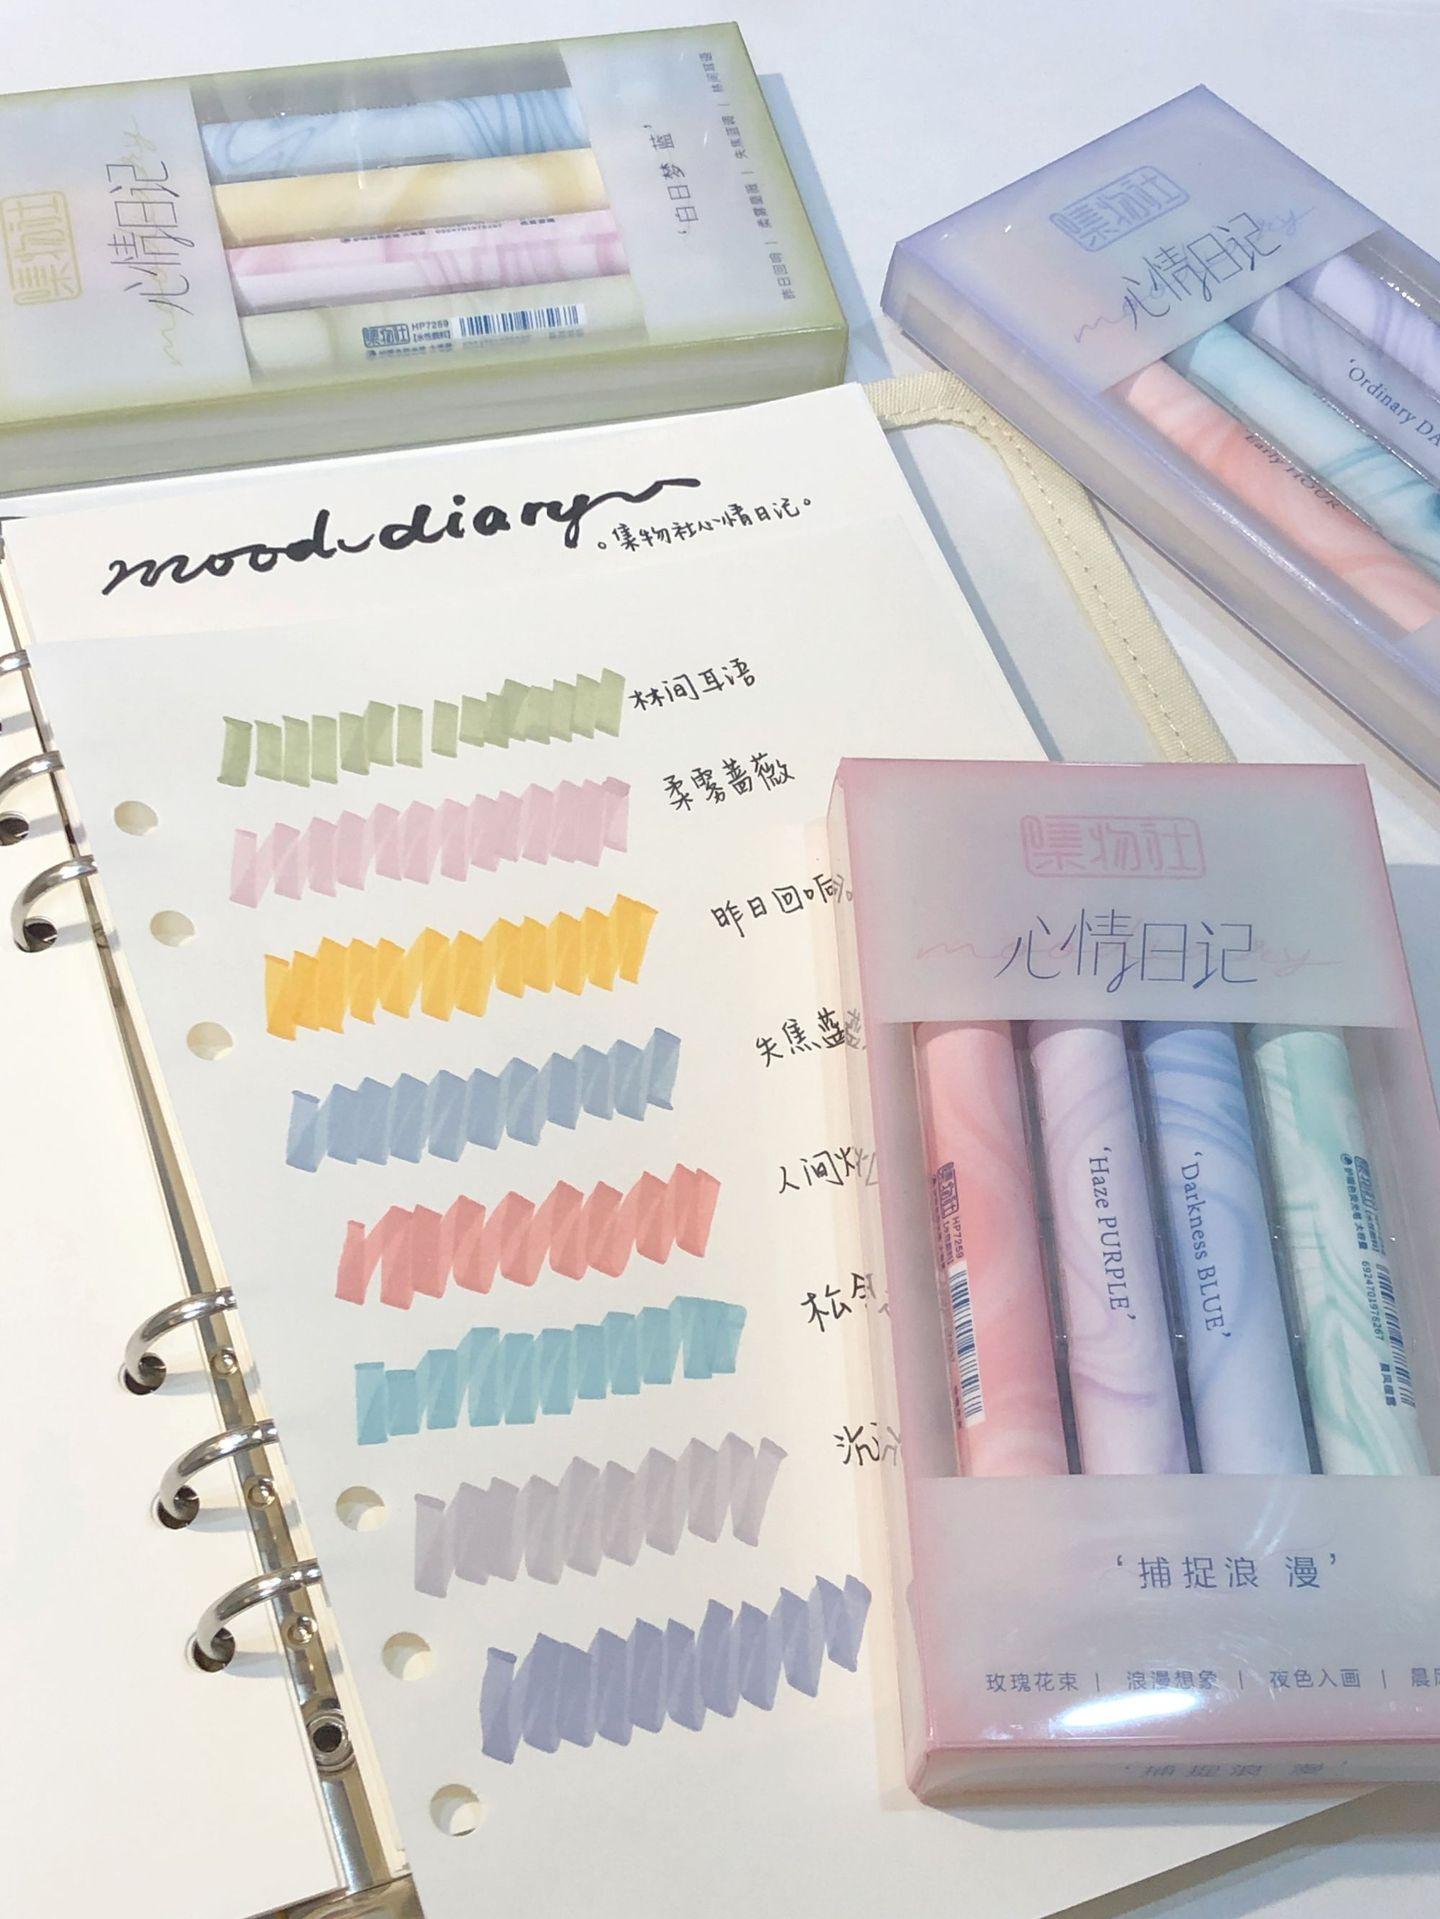 集物社
心情日记
HP7259
【水性颜料】
'白日梦 蓝'
昨日回响 | 柔雾蔷薇 | 失焦蓝调 | 林间耳语
集物社
心情日记
'Ordinary DA
Early HOUR
mood diary
。集物社心情日记。
林间耳语
柔雾蔷薇
昨日回响。
失焦蓝
人间
松
沉
集物社
心情日记
集物社
HP7259
'Haze PURPLE'
'Darkness BLUE'
6924701978267
'捕捉浪 漫'
玫瑰花束 | 浪漫想象 | 夜色入画 | 晨
'捕捉浪 漫'